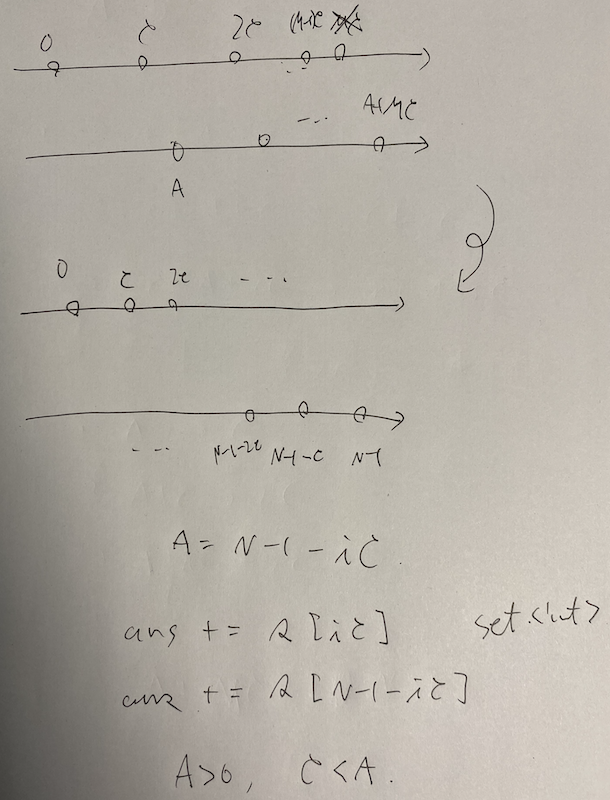 0 C 2C (M-1)C
... A+MC
A
0 C 2C ...
... N-1-2C N-1-C N-1
A = N-1-iC.
ans += s[iC] set<int>
ans += s[N-1-iC]
A>0, C<A.